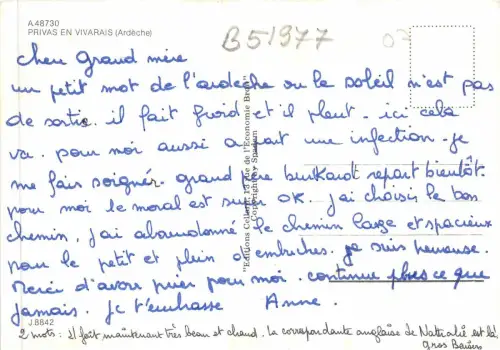 A 48730
PRIVAS EN VIVARAIS (Ardèche)
B51977
07
chere Grand mère
un petit mot de l'ardèche ou le soleil n'est pas
de sortie. il fait froid et il pleut. ici cela
va. pour moi aussi a part une infection. je
me fais soigner. grand père burkardt repart bientôt.
pour moi le moral est super OK. j'ai choisi le bon
chemin, j'ai abandonné le chemin large et spacieux
pour le petit et plein d'embuches. je suis heureuse.
Merci d'avoir prier pour moi. continue plus ce que
jamais. je t'embrasse Anne.
J 8842
2 mots: il fait maintenant très beau et chaud. La correspondante anglaise de Nathalie est là
gros Baisers
"Editions Cellard, 13 Rue de l'Economie Bron"
Copyright by Spadem